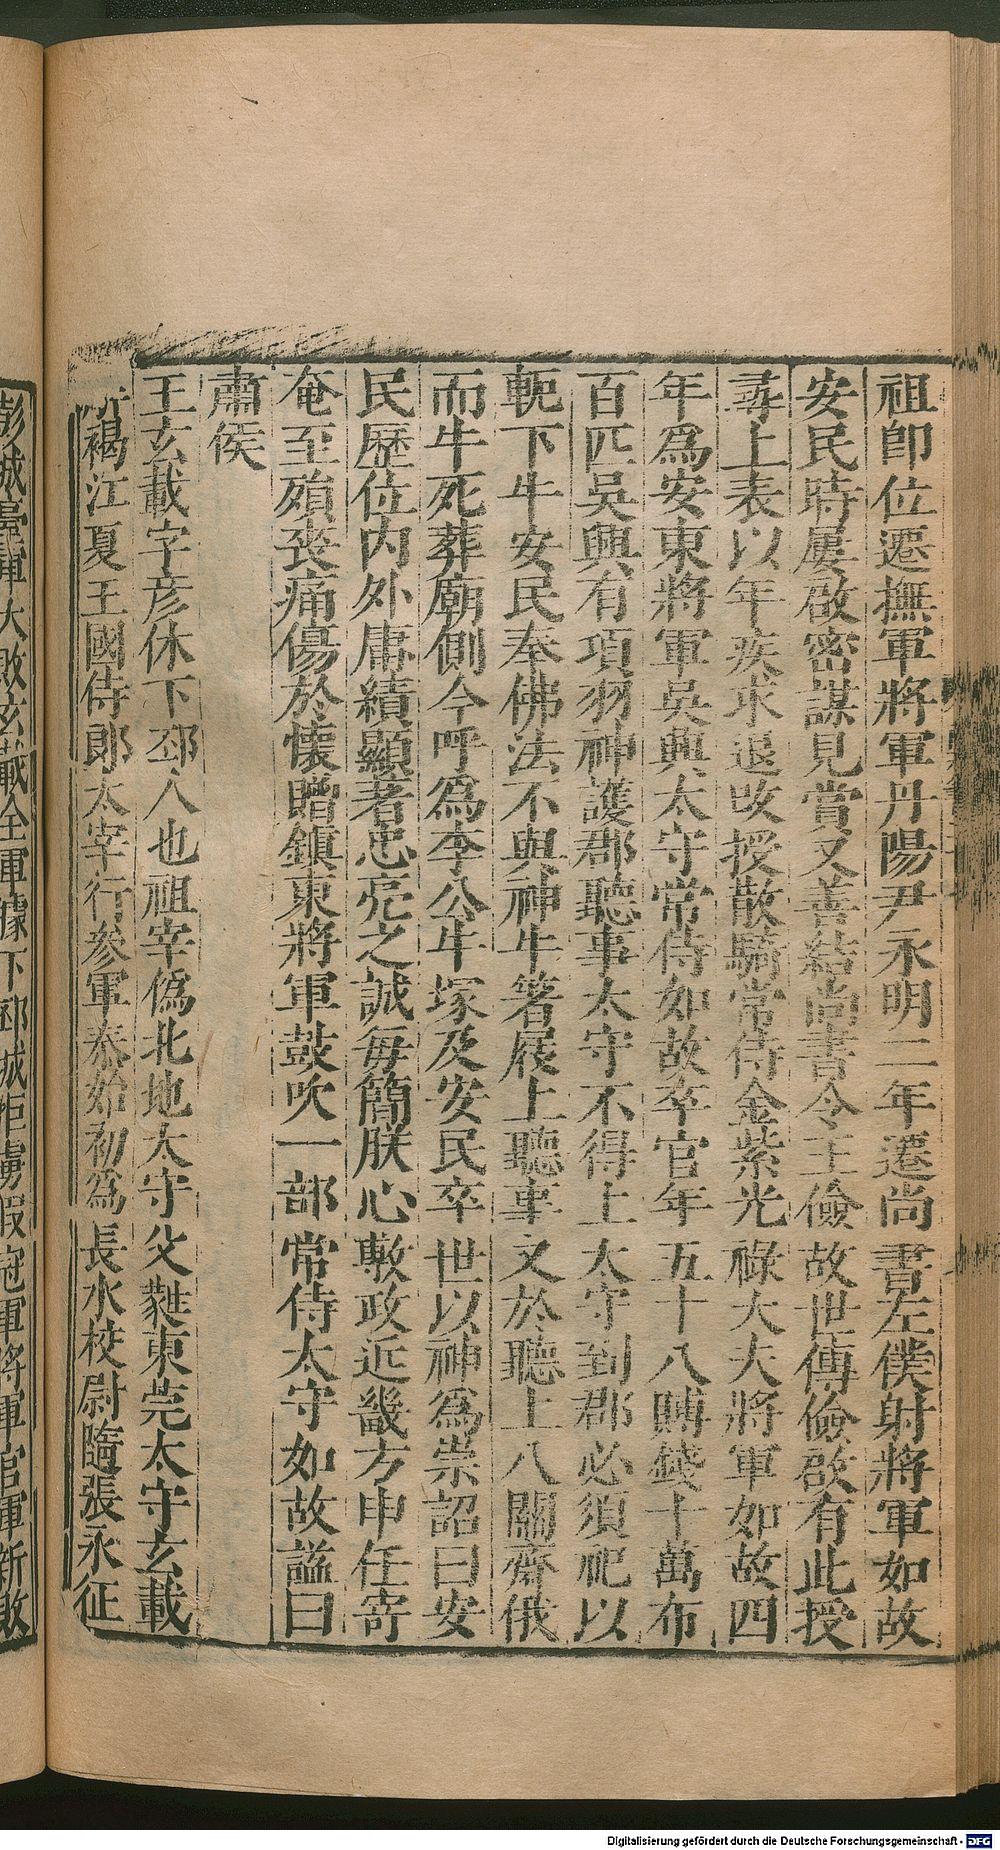 祖即位遷撫軍將軍丹陽尹永明二年遷尚書左僕射將軍如故
安民時屢啟密謀見賞又善結尚書令王儉故世傳儉啟有此授
尋上表以年疾求退改授散騎常侍金紫光祿大夫將軍如故四
年為安東將軍吳興太守常侍如故卒官年五十八賻錢十萬布
百匹吳興有項羽神護郡聽事太守不得上太守到郡必須祀以
軛下牛安民奉佛法不與神牛著屐上聽事又於聽上八關齋俄
而牛死葬廟側今呼為李公牛塚及安民卒世以神為祟詔曰安
民歷位內外庸績顯著忠亮之誠每簡朕心敷政近畿方申任寄
奄至殞喪痛傷於懷贈鎮東將軍鼓吹一部常侍太守如故諡曰
肅侯
王玄載字彥休下邳人也祖宰偽北地太守父蕤東莞太守玄載
解褐江夏王國侍郎太宰行參軍泰始初為長水校尉隨張永征
彭城臺軍大敗玄載全軍據下邳城拒虜假冠軍將軍官軍新敗
Digitalisierung gefördert durch die Deutsche Forschungsgemeinschaft - DFG